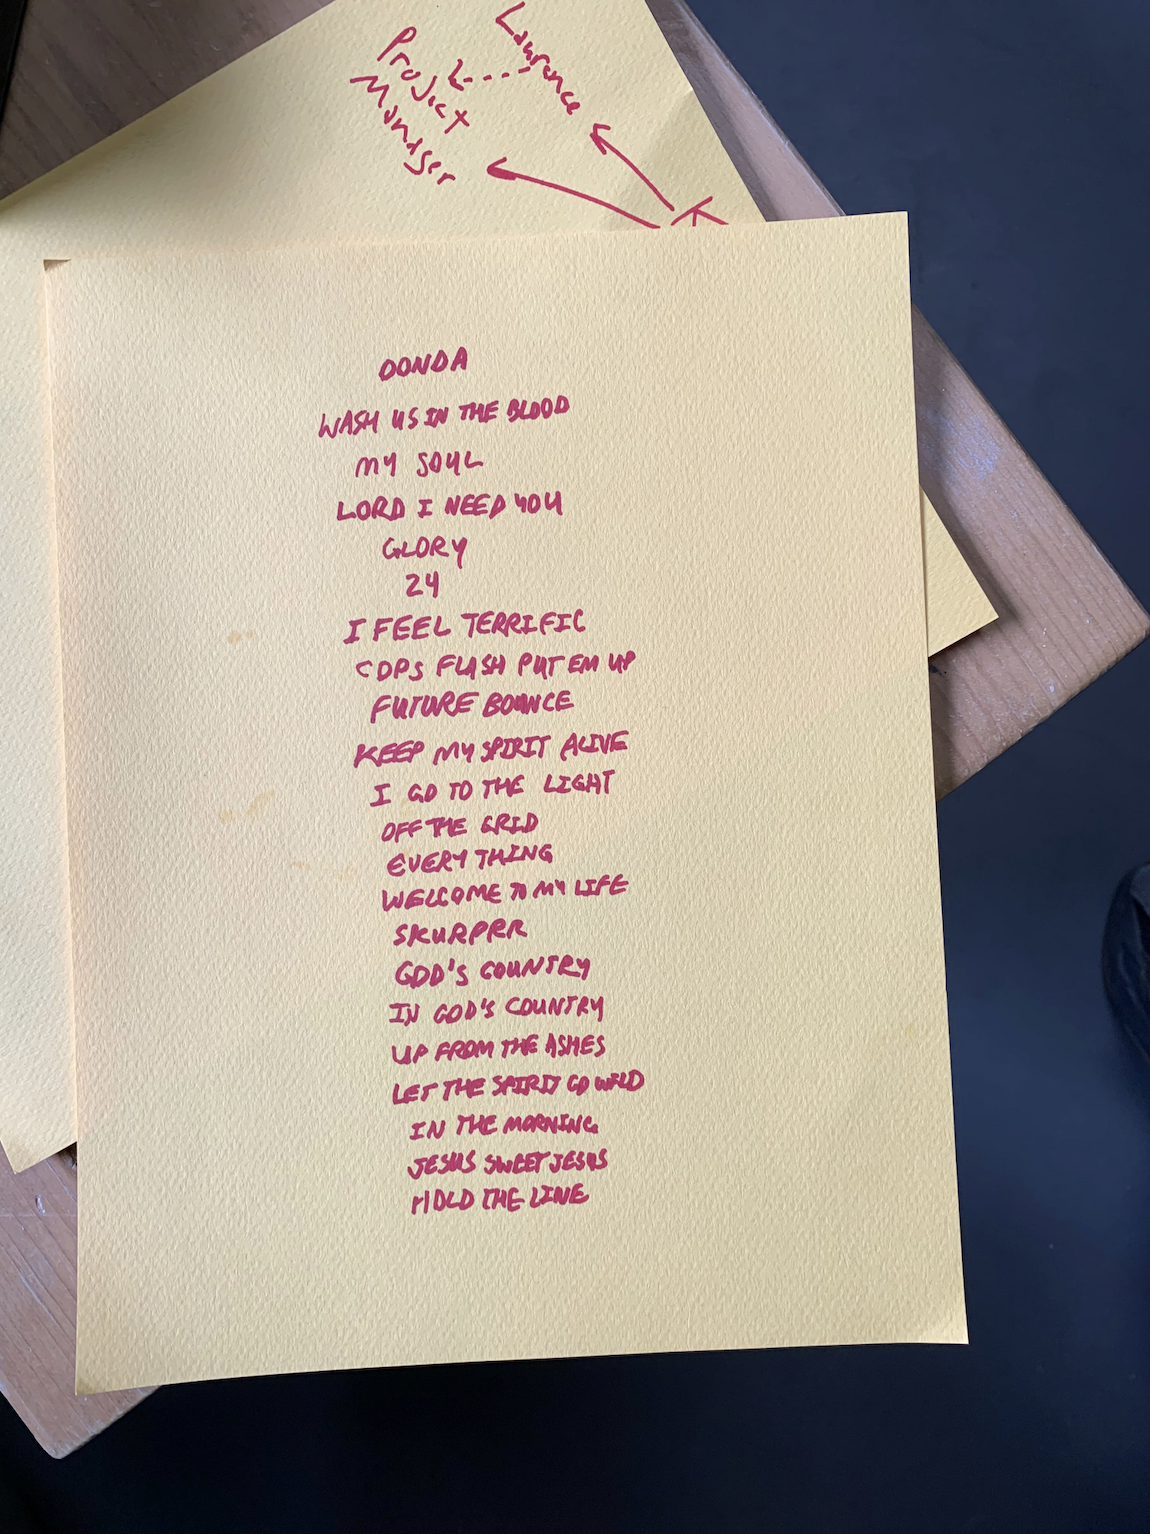 Lawrence
Project
Manager
K
DONDA
WASH US IN THE BLOOD
MY SOUL
LORD I NEED YOU
GLORY
24
I FEEL TERRIFIC
COPS FLASH PUT EM UP
FUTURE BOUNCE
KEEP MY SPIRIT ALIVE
I GO TO THE LIGHT
OFF THE GRID
EVERY THING
WELCOME TO MY LIFE
SKURPRR
GOD'S COUNTRY
IN GOD'S COUNTRY
UP FROM THE ASHES
LET THE SPIRIT GO WILD
IN THE MORNING
JESUS SWEET JESUS
HOLD THE LINE